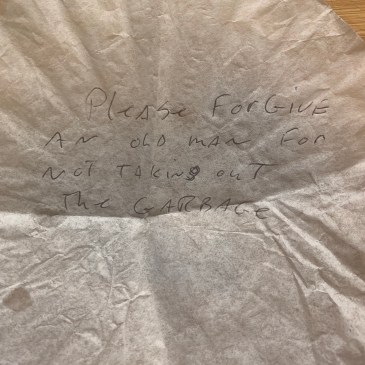 Please Forgive
An old man For
Not Taking out
The GARBAGE